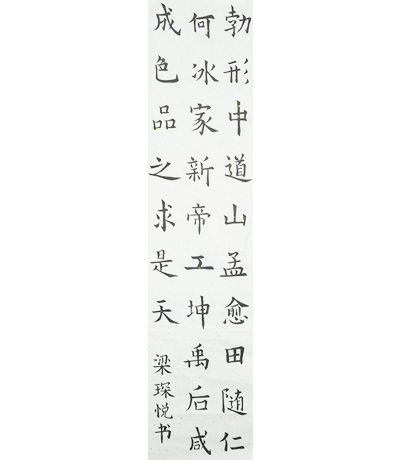 勃形中道山孟愈田随仁
何冰家新帝工坤禹后咸
成色品之求是天
梁琛悦书